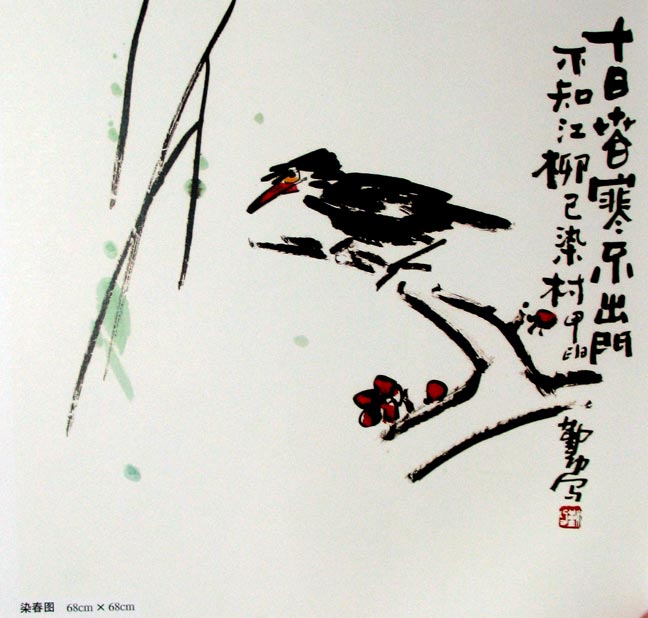 十日春寒不出門
不知江柳已染村甲申
勤写
染春图 68cm × 68cm